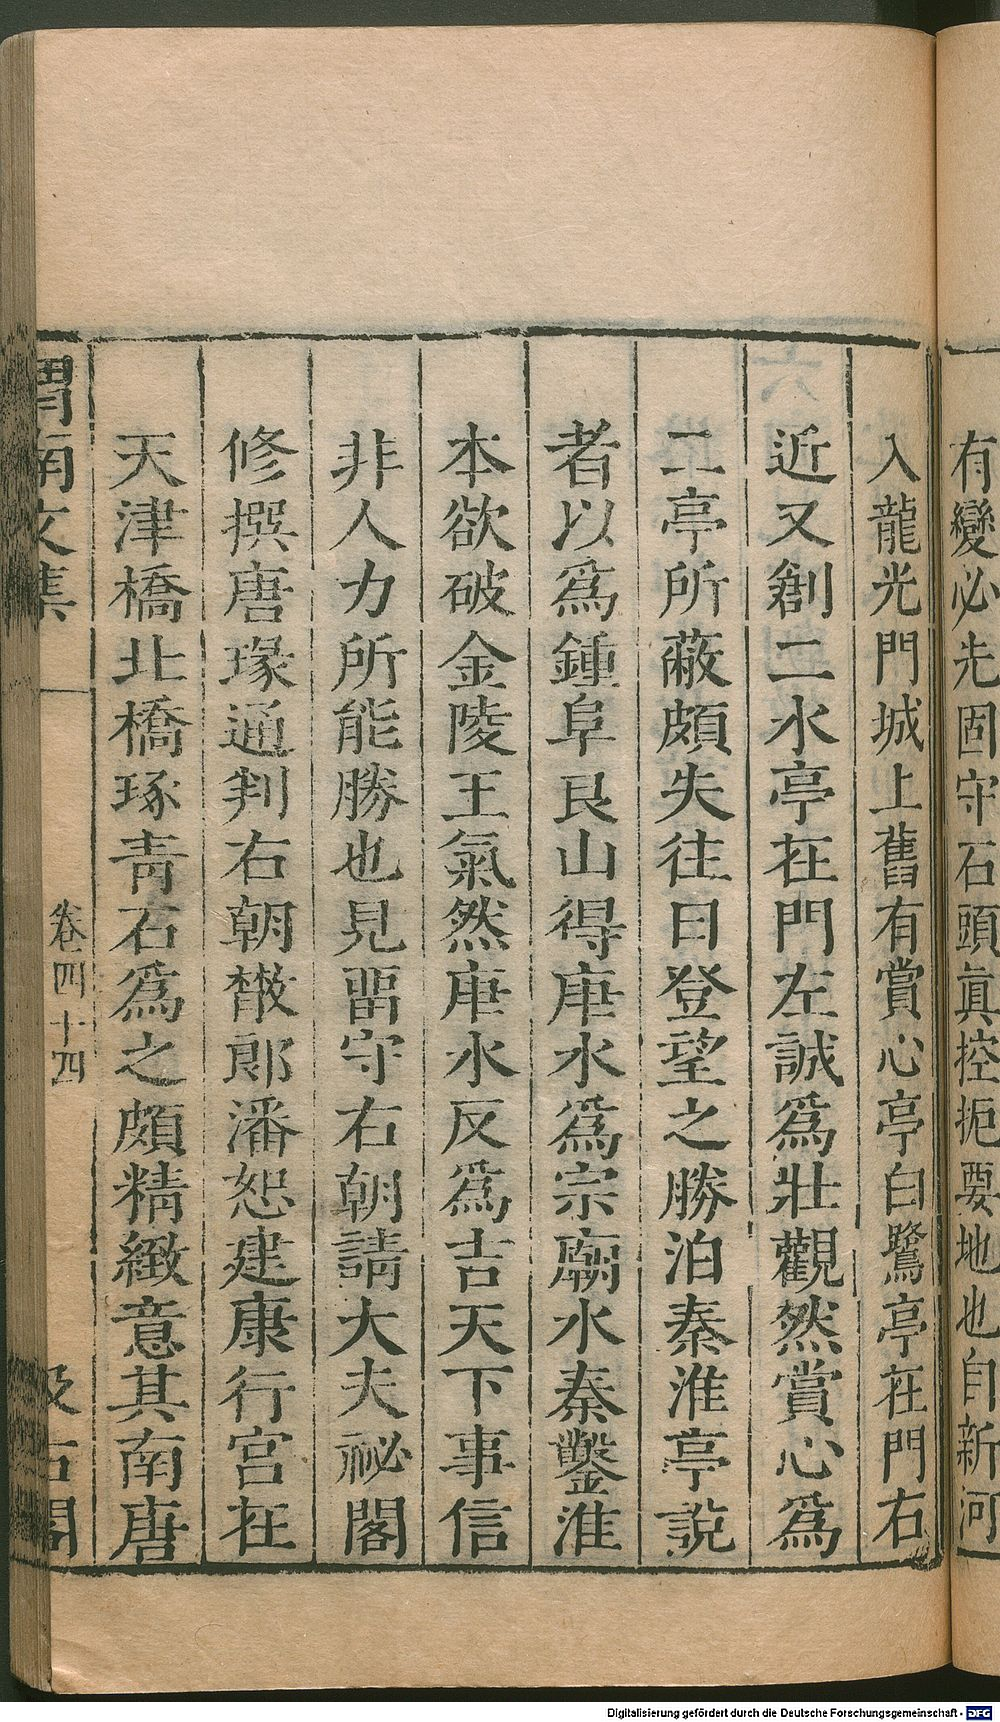 有變必先固守石頭真控扼要地也自新河
入龍光門城上舊有賞心亭白鷺亭在門右
近又創二水亭在門左誠爲壯觀然賞心爲
二亭所蔽頗失往日登望之勝泊秦淮亭說
者以爲鍾阜艮山得庚水爲宗廟水秦鑿淮
本欲破金陵王氣然庚水反爲吉天下事信
非人力所能勝也見畱守右朝請大夫祕閣
修撰唐瑑通判右朝散郎潘恕建康行宮在
天津橋北橋琢青石爲之頗精緻意其南唐
渭南文集
卷四十四
汲古閣
Digitalisierung gefördert durch die Deutsche Forschungsgemeinschaft - DFG